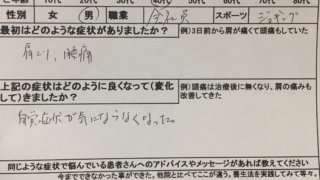 性別 女 男 職業 会社員 スポーツ ジョギング
最初はどのような症状がありましたか？ 例)3日前から肩が痛くて頭痛もしていた
肩こり、腰痛
上記の症状はどのように良くなって(変化 例）頭痛は治療後に無くなり、肩の痛みも
して)きましたか？ 改善してきた
自覚症状が気にならなくなった。
同じような症状で悩んでいる患者さんへのアドバイスやメッセージがあれば教えてください
今までできなかった事ができた。他院と比べてここが違う。養生法を実践してみて等々。